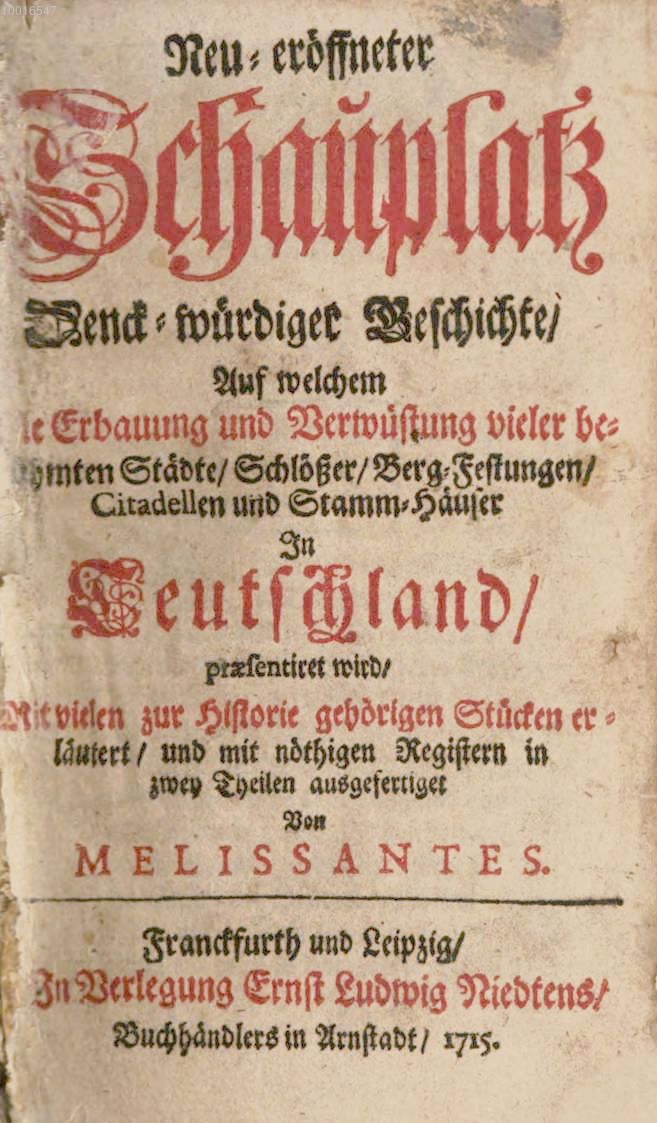 10016547
Neu-eröffneter
Schauplatz
Denck-würdiger Geschichte/
Auf welchem
Erbauung und Verwüstung vieler be-
Städte/ Schlößer/ Berg-Festungen/
Citadellen und Stamm-Häuser
In
Teutschland/
præsentiret wird/
Mit vielen zur Historie gehörigen Stücken er-
läutert/ und mit nöthigen Registern in
zwey Theilen ausgefertiget
Von
MELISSANTES.
Franckfurth und Leipzig/
In Verlegung Ernst Ludwig Niedtens/
Buchhändlers in Arnstadt/ 1715.